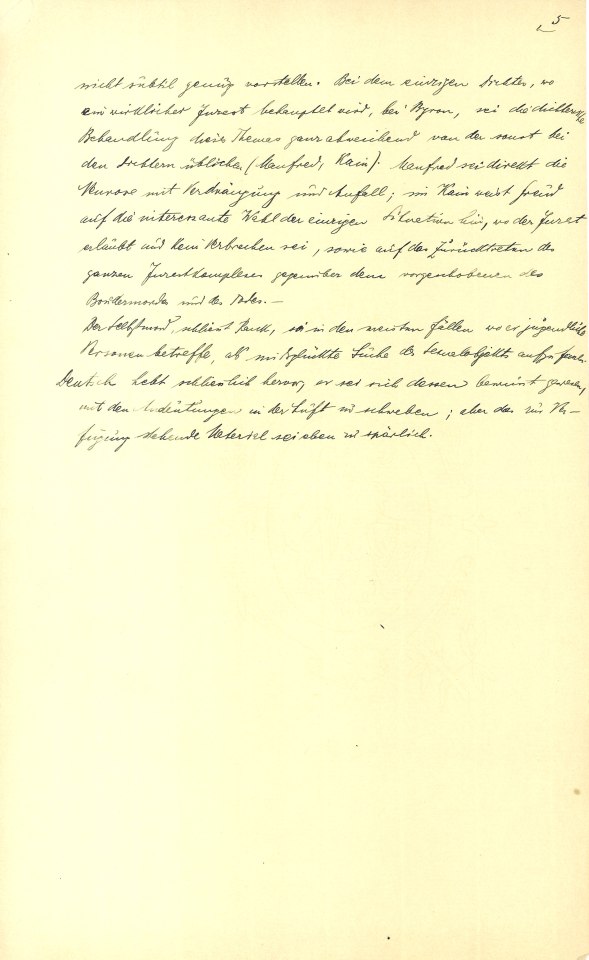 5
nicht subtil genug vorstellen. Bei dem einzigen Dichter, wo
ein wirklicher Inzest behauptet wird, bei Byron, sei die dichterische
Behandlung dieses Themas ganz abweichend von der sonst bei
den Dichtern üblichen (Manfred, Kain). Manfred sei direkt die
Neurose mit Verdrängung und Anfall; im Kain weist Freud
auf die interessante Wahl der einzigen Situation hin, wo der Inzest
erlaubt und kein Verbrechen sei, sowie auf das Zurücktreten des
ganzen Inzestkomplexes gegenüber dem vorgeschobenen des
Brudermordes und des Todes. —
Der Selbstmord, schliesst Rank, sei in den meisten Fällen wo er jugendliche
Personen betreffe, als missglückte Suche des Sexualobjekts
Deutsch hebt schliesslich hervor, er sei sich dessen bewusst gewesen,
mit den Andeutungen in der Luft zu schweben; aber das zur Ver-
fügung stehende Material sei eben zu spärlich.